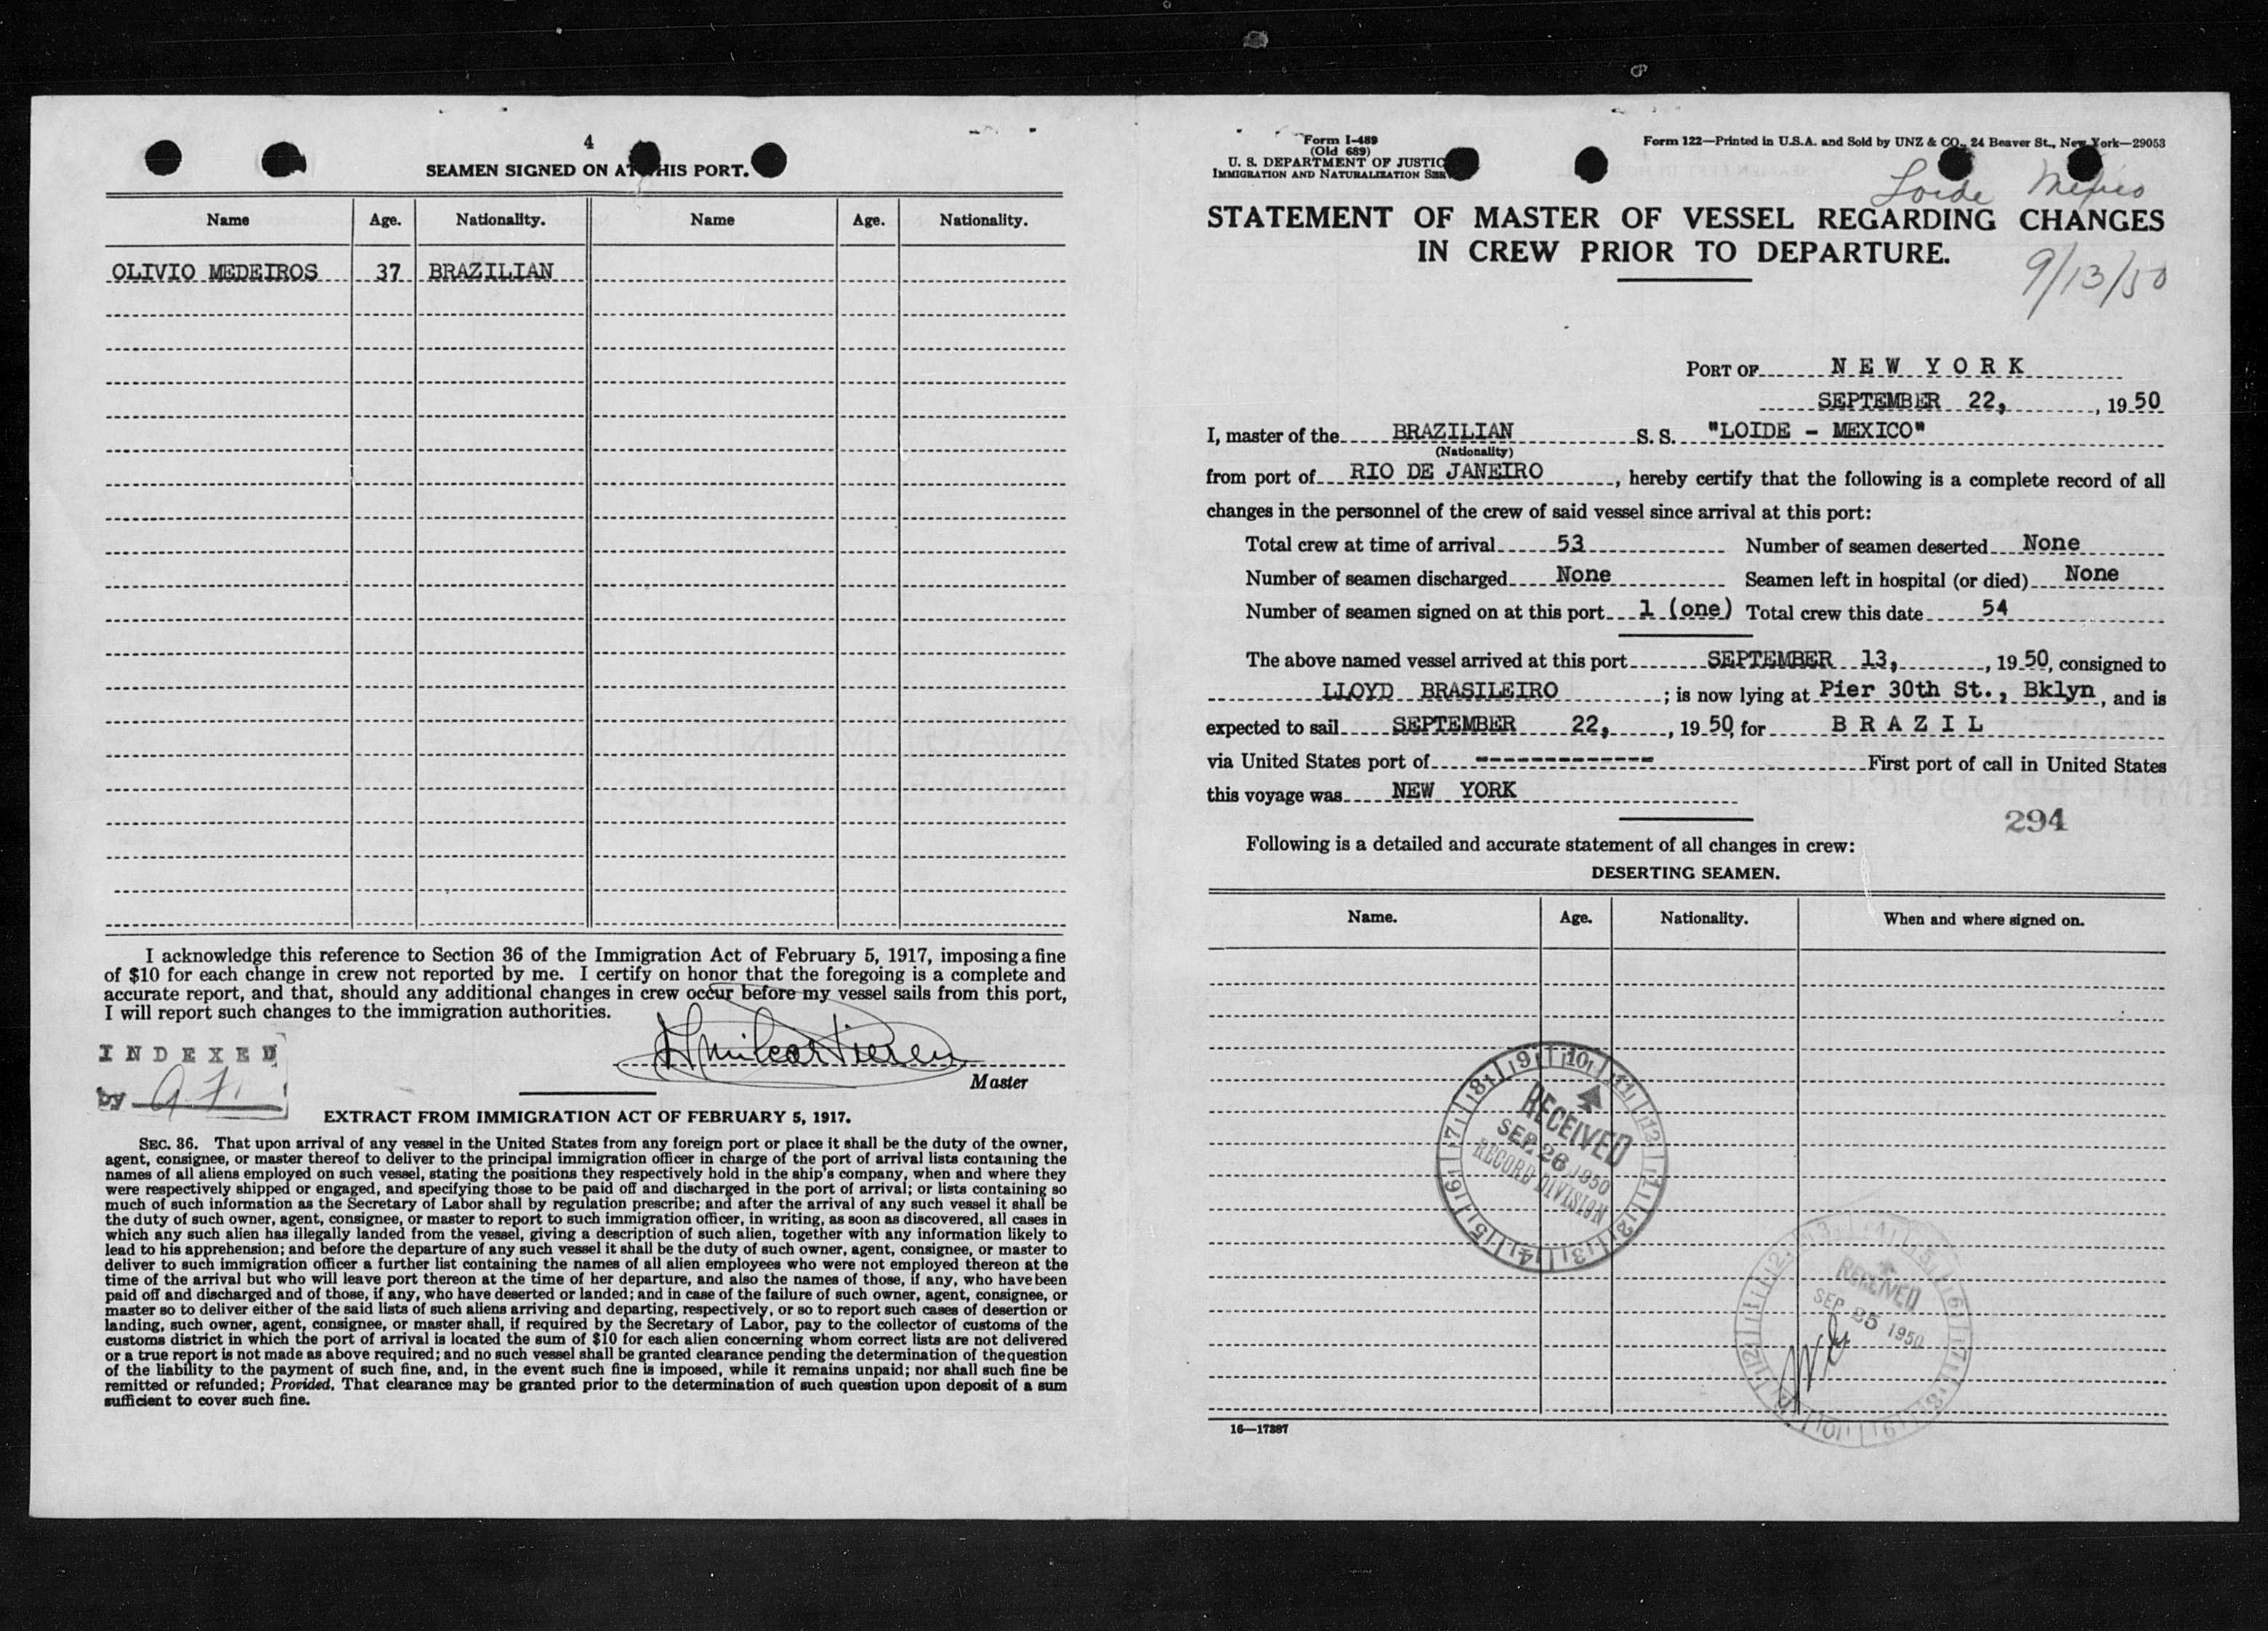 4
SEAMEN SIGNED ON AT THIS PORT.
Name Age. Nationality. Name Age. Nationality.
OLIVIO MEDEIROS 37 BRAZILIAN
I acknowledge this reference to Section 36 of the Immigration Act of February 5, 1917, imposing a fine
of $10 for each change in crew not reported by me. I certify on honor that the foregoing is a complete and
accurate report, and that, should any additional changes in crew occur before my vessel sails from this port,
I will report such changes to the immigration authorities.
Master
INDEXED
by
EXTRACT FROM IMMIGRATION ACT OF FEBRUARY 5, 1917.
SEC. 36. That upon arrival of any vessel in the United States from any foreign port or place it shall be the duty of the owner,
agent, consignee, or master thereof to deliver to the principal immigration officer in charge of the port of arrival lists containing the
names of all aliens employed on such vessel, stating the positions they respectively hold in the ship's company, when and where they
were respectively shipped or engaged, and specifying those to be paid off and discharged in the port of arrival; or lists containing so
much of such information as the Secretary of Labor shall by regulation prescribe; and after the arrival of any such vessel it shall be
the duty of such owner, agent, consignee, or master to report to such immigration officer, in writing, as soon as discovered, all cases in
which any such alien has illegally landed from the vessel, giving a description of such alien, together with any information likely to
lead to his apprehension; and before the departure of any such vessel it shall be the duty of such owner, agent, consignee, or master to
deliver to such immigration officer a further list containing the names of all alien employees who were not employed thereon at the
time of the arrival but who will leave port thereon at the time of her departure, and also the names of those, if any, who have been
paid off and discharged and of those, if any, who have deserted or landed; and in case of the failure of such owner, agent, consignee, or
master so to deliver either of the said lists of such aliens arriving and departing, respectively, or so to report such cases of desertion or
landing, such owner, agent, consignee, or master shall, if required by the Secretary of Labor, pay to the collector of customs of the
customs district in which the port of arrival is located the sum of $10 for each alien concerning whom correct lists are not delivered
or a true report is not made as above required; and no such vessel shall be granted clearance pending the determination of the question
of the liability to the payment of such fine, and, in the event such fine is imposed, while it remains unpaid; nor shall such fine be
remitted or refunded; Provided, That clearance may be granted prior to the determination of such question upon deposit of a sum
sufficient to cover such fine.
Form I-489
(Old 689)
U. S. DEPARTMENT OF JUSTIC
IMMIGRATION AND NATURALIZATION SER
Form 122—Printed in U.S.A. and Sold by UNZ & CO., 24 Beaver St., New York—29053
Loide Mexico
STATEMENT OF MASTER OF VESSEL REGARDING CHANGES
IN CREW PRIOR TO DEPARTURE.
9/13/50
PORT OF NEW YORK
SEPTEMBER 22, , 1950
I, master of the BRAZILIAN S. S. "LOIDE - MEXICO"
(Nationality)
from port of RIO DE JANEIRO , hereby certify that the following is a complete record of all
changes in the personnel of the crew of said vessel since arrival at this port:
Total crew at time of arrival 53 Number of seamen deserted None
Number of seamen discharged None Seamen left in hospital (or died) None
Number of seamen signed on at this port 1 (one) Total crew this date 54
The above named vessel arrived at this port SEPTEMBER 13, , 1950, consigned to
LLOYD BRASILEIRO ; is now lying at Pier 30th St., Bklyn, and is
expected to sail SEPTEMBER 22, , 1950 for BRAZIL
via United States port of -------------- First port of call in United States
this voyage was NEW YORK
294
Following is a detailed and accurate statement of all changes in crew:
DESERTING SEAMEN.
Name. Age. Nationality. When and where signed on.
RECEIVED
SEP 26 1950
RECORD DIVISION
RECEIVED
SEP 25 1950
16—17387